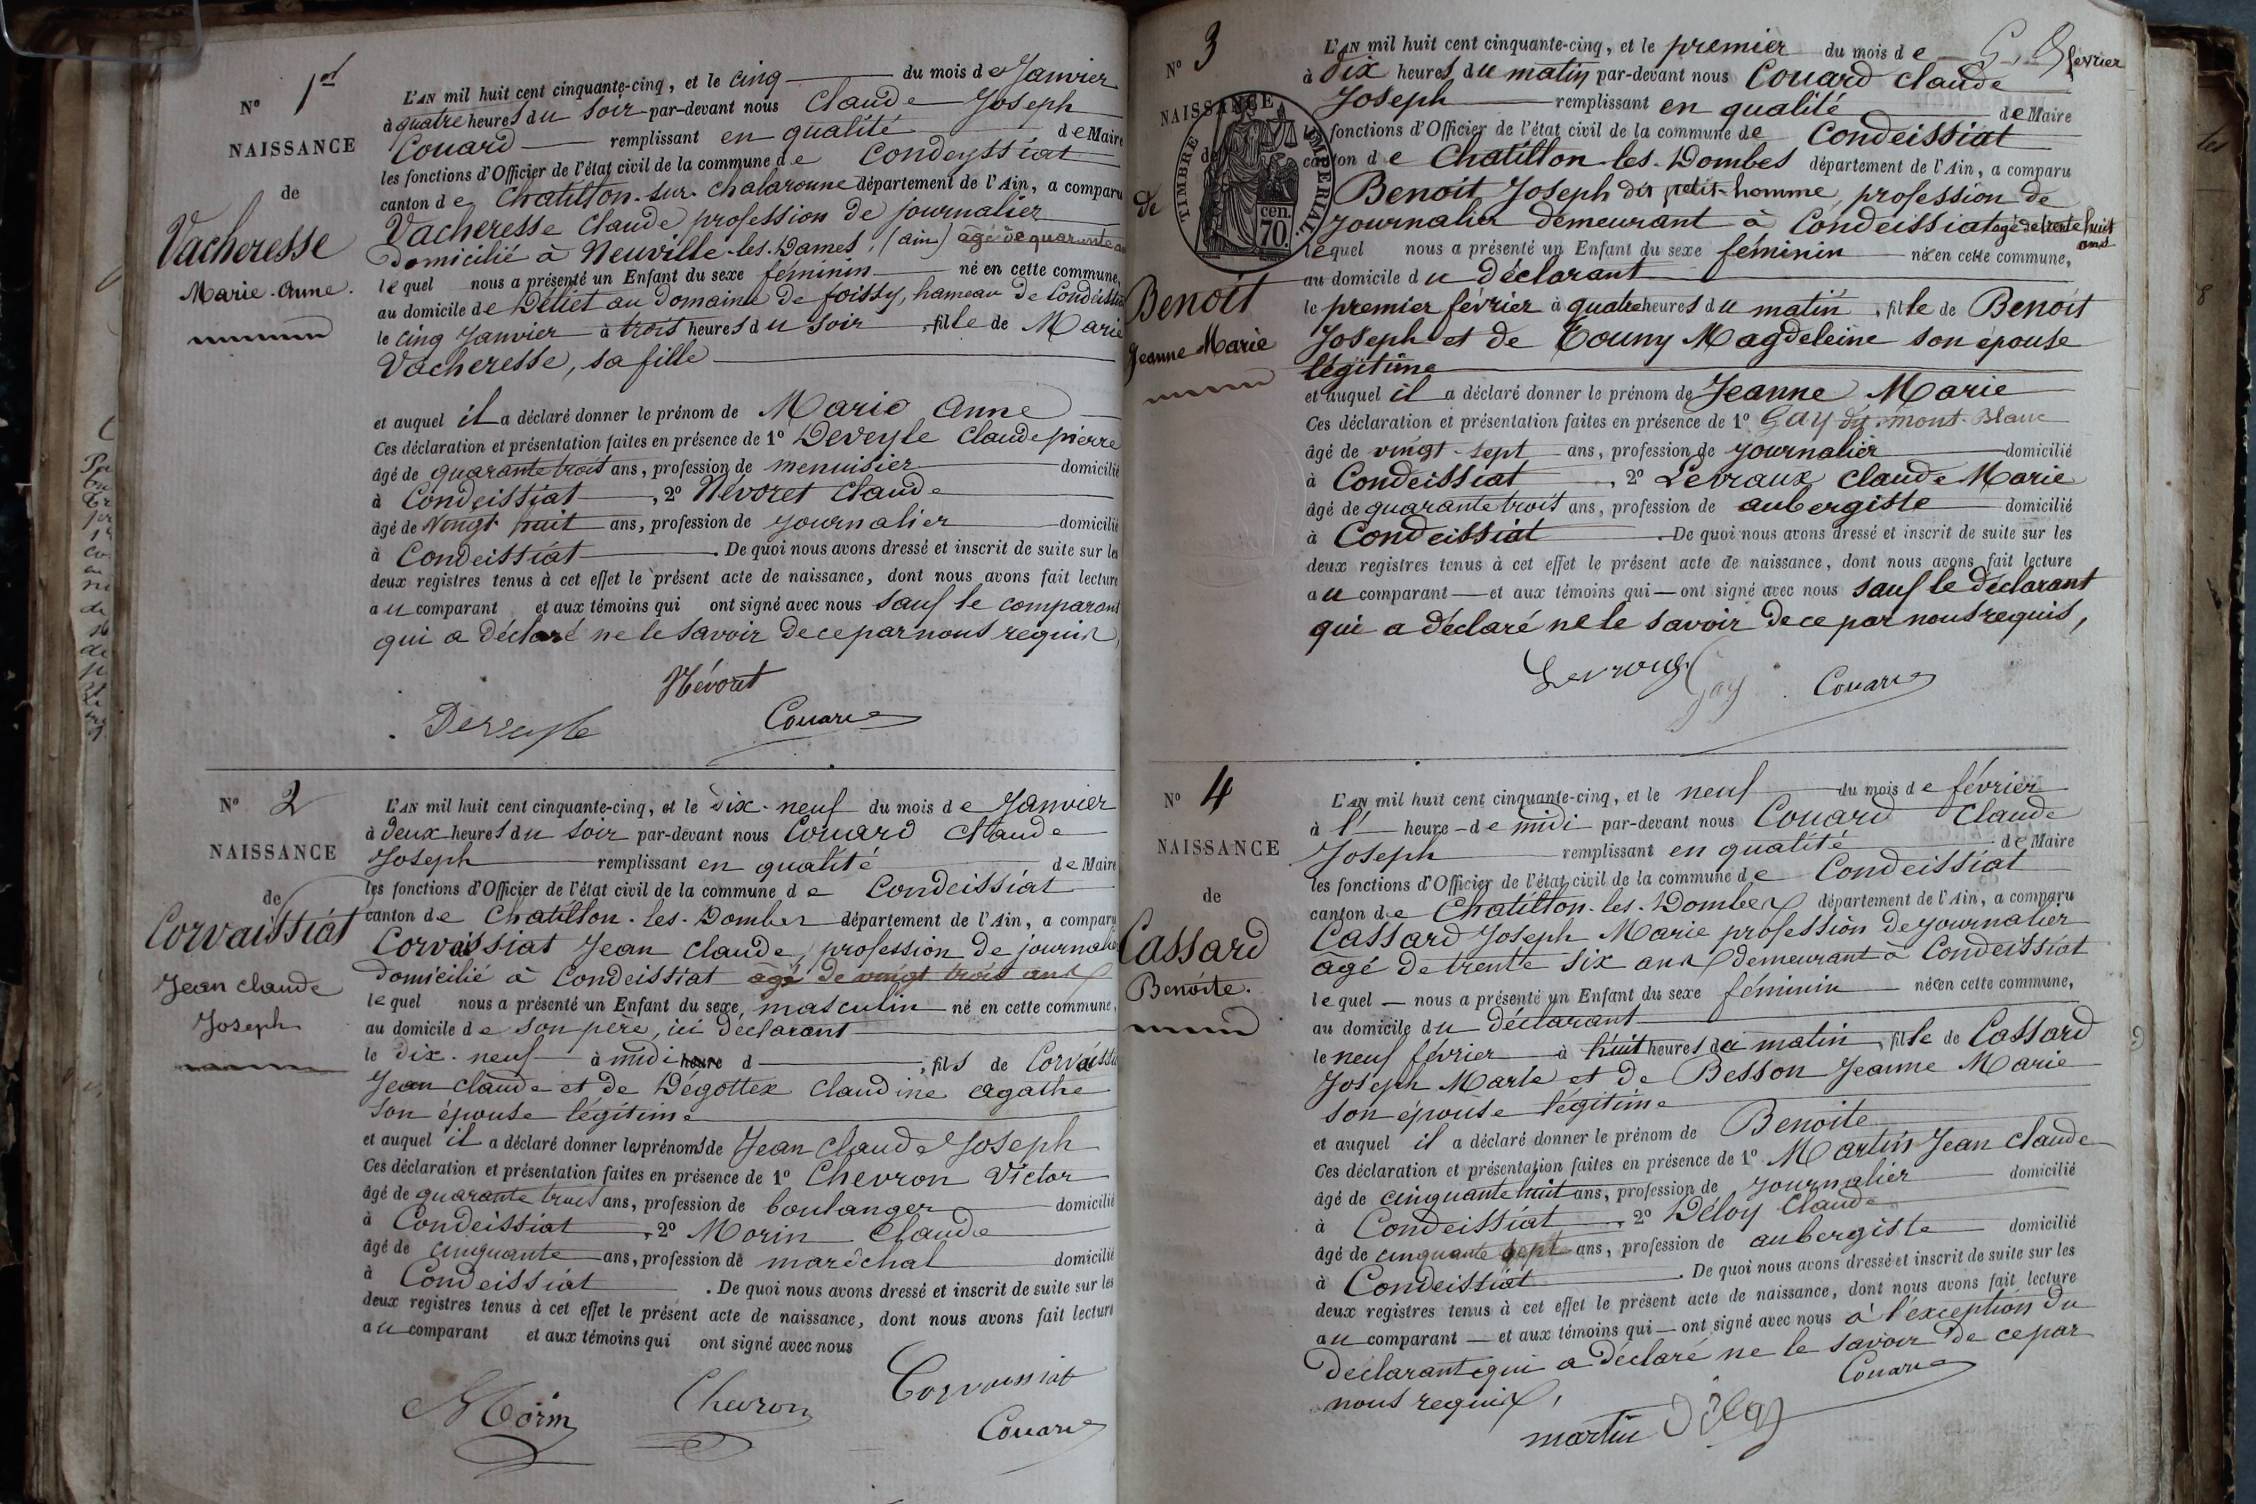 N° 1er
NAISSANCE
de
Vacheresse
Marie-Anne.
L'AN mil huit cent cinquante-cinq, et le cinq du mois de Janvier
à quatre heures du soir par-devant nous Claude Joseph
Couard remplissant en qualité de Maire
les fonctions d'Officier de l'état civil de la commune de Condeyssiat
canton de Chatillon-sur-Chalaronne département de l'Ain, a comparu
Vacheresse Claude profession de journalier
domicilié à Neuville-les-Dames, (ain) âgé de quarante ans
lequel nous a présenté un Enfant du sexe féminin né en cette commune,
au domicile de Deliet au domaine de foissy, hameau de Condeissiat
le cinq Janvier à trois heures du soir, fille de Marie
Vacheresse, sa fille
et auquel il a déclaré donner le prénom de Marie Anne
Ces déclaration et présentation faites en présence de 1° Deveyle Claude pierre
âgé de quarante trois ans, profession de menuisier domicilié
à Condeissiat, 2° Nevoret Claude
âgé de Vingt huit ans, profession de journalier domicilié
à Condeissiat. De quoi nous avons dressé et inscrit de suite sur les
deux registres tenus à cet effet le présent acte de naissance, dont nous avons fait lecture
au comparant et aux témoins qui ont signé avec nous sauf le comparant
qui a déclaré ne le savoir de ce par nous requis,
Névoret
Deveyle Couard
N° 2
NAISSANCE
de
Corvaissiat
Jean Claude
Joseph
L'AN mil huit cent cinquante-cinq, et le dix-neuf du mois de Janvier
à deux heures du soir par-devant nous Couard Claude
Joseph remplissant en qualité de Maire
les fonctions d'Officier de l'état civil de la commune de Condeissiat
canton de Chatillon-les-Dombes département de l'Ain, a comparu
Corvaissiat Jean Claude, profession de journalier
domicilié à Condeissiat âgé de vingt trois ans
lequel nous a présenté un Enfant du sexe, masculin né en cette commune,
au domicile de son père, ici déclarant
le dix-neuf à midi heure d, fils de Corvaissiat
Jean Claude et de Dégottex Claudine agathe
son épouse légitime
et auquel il a déclaré donner les prénoms de Jean Claude Joseph
Ces déclaration et présentation faites en présence de 1° Chevron Victor
âgé de quarante trois ans, profession de boulanger domicilié
à Condeissiat, 2° Morin Claude
âgé de cinquante ans, profession de maréchal domicilié
à Condeissiat. De quoi nous avons dressé et inscrit de suite sur les
deux registres tenus à cet effet le présent acte de naissance, dont nous avons fait lecture
au comparant et aux témoins qui ont signé avec nous
Morin Chevron Corvaissiat
Couard
N° 3
NAISSANCE
de
Benoit
Jeanne Marie
TIMBRE IMPERIAL.
70 cen.
L'AN mil huit cent cinquante-cinq, et le premier du mois de février
à Dix heures du matin par-devant nous Couard Claude
Joseph remplissant en qualité de Maire
les fonctions d'Officier de l'état civil de la commune de Condeissiat
canton de Chatillon-les-Dombes département de l'Ain, a comparu
Benoit Joseph dit petit-homme, profession de
journalier demeurant à Condeissiat agé de trente huit ans
lequel nous a présenté un Enfant du sexe féminin née en cette commune,
au domicile du déclarant
le premier février à quatre heures du matin, fille de Benoit
Joseph et de Touny Magdeleine son épouse
légitime
et auquel il a déclaré donner le prénom de Jeanne Marie
Ces déclaration et présentation faites en présence de 1° Gay du mont-Blanc
âgé de vingt-sept ans, profession de journalier domicilié
à Condeissiat, 2° Levraux Claude Marie
âgé de quarante trois ans, profession de aubergiste domicilié
à Condeissiat. De quoi nous avons dressé et inscrit de suite sur les
deux registres tenus à cet effet le présent acte de naissance, dont nous avons fait lecture
au comparant et aux témoins qui ont signé avec nous sauf le déclarant
qui a déclaré ne le savoir de ce par nous requis,
Levroux Gay Couard
N° 4
NAISSANCE
de
Cassard
Benoite.
L'AN mil huit cent cinquante-cinq, et le neuf du mois de février
à l' heure de midi par-devant nous Couard Claude
Joseph remplissant en qualité de Maire
les fonctions d'Officier de l'état civil de la commune de Condeissiat
canton de Chatillon-les-Dombes département de l'Ain, a comparu
Cassard Joseph Marie profession de journalier
âgé de trente six ans demeurant à Condeissiat
lequel nous a présenté un Enfant du sexe féminin née en cette commune,
au domicile du déclarant
le neuf février à huit heures du matin, fille de Cassard
Joseph Marie et de Besson Jeanne Marie
son épouse légitime
et auquel il a déclaré donner le prénom de Benoite
Ces déclaration et présentation faites en présence de 1° Martin Jean Claude
âgé de cinquante huit ans, profession de journalier domicilié
à Condeissiat, 2° Déloy Claude
âgé de cinquante sept ans, profession de aubergiste domicilié
à Condeissiat. De quoi nous avons dressé et inscrit de suite sur les
deux registres tenus à cet effet le présent acte de naissance, dont nous avons fait lecture
au comparant et aux témoins qui ont signé avec nous à l'exception du
déclarant qui a déclaré ne le savoir de ce par
nous requis,
Couard
martin Déloy